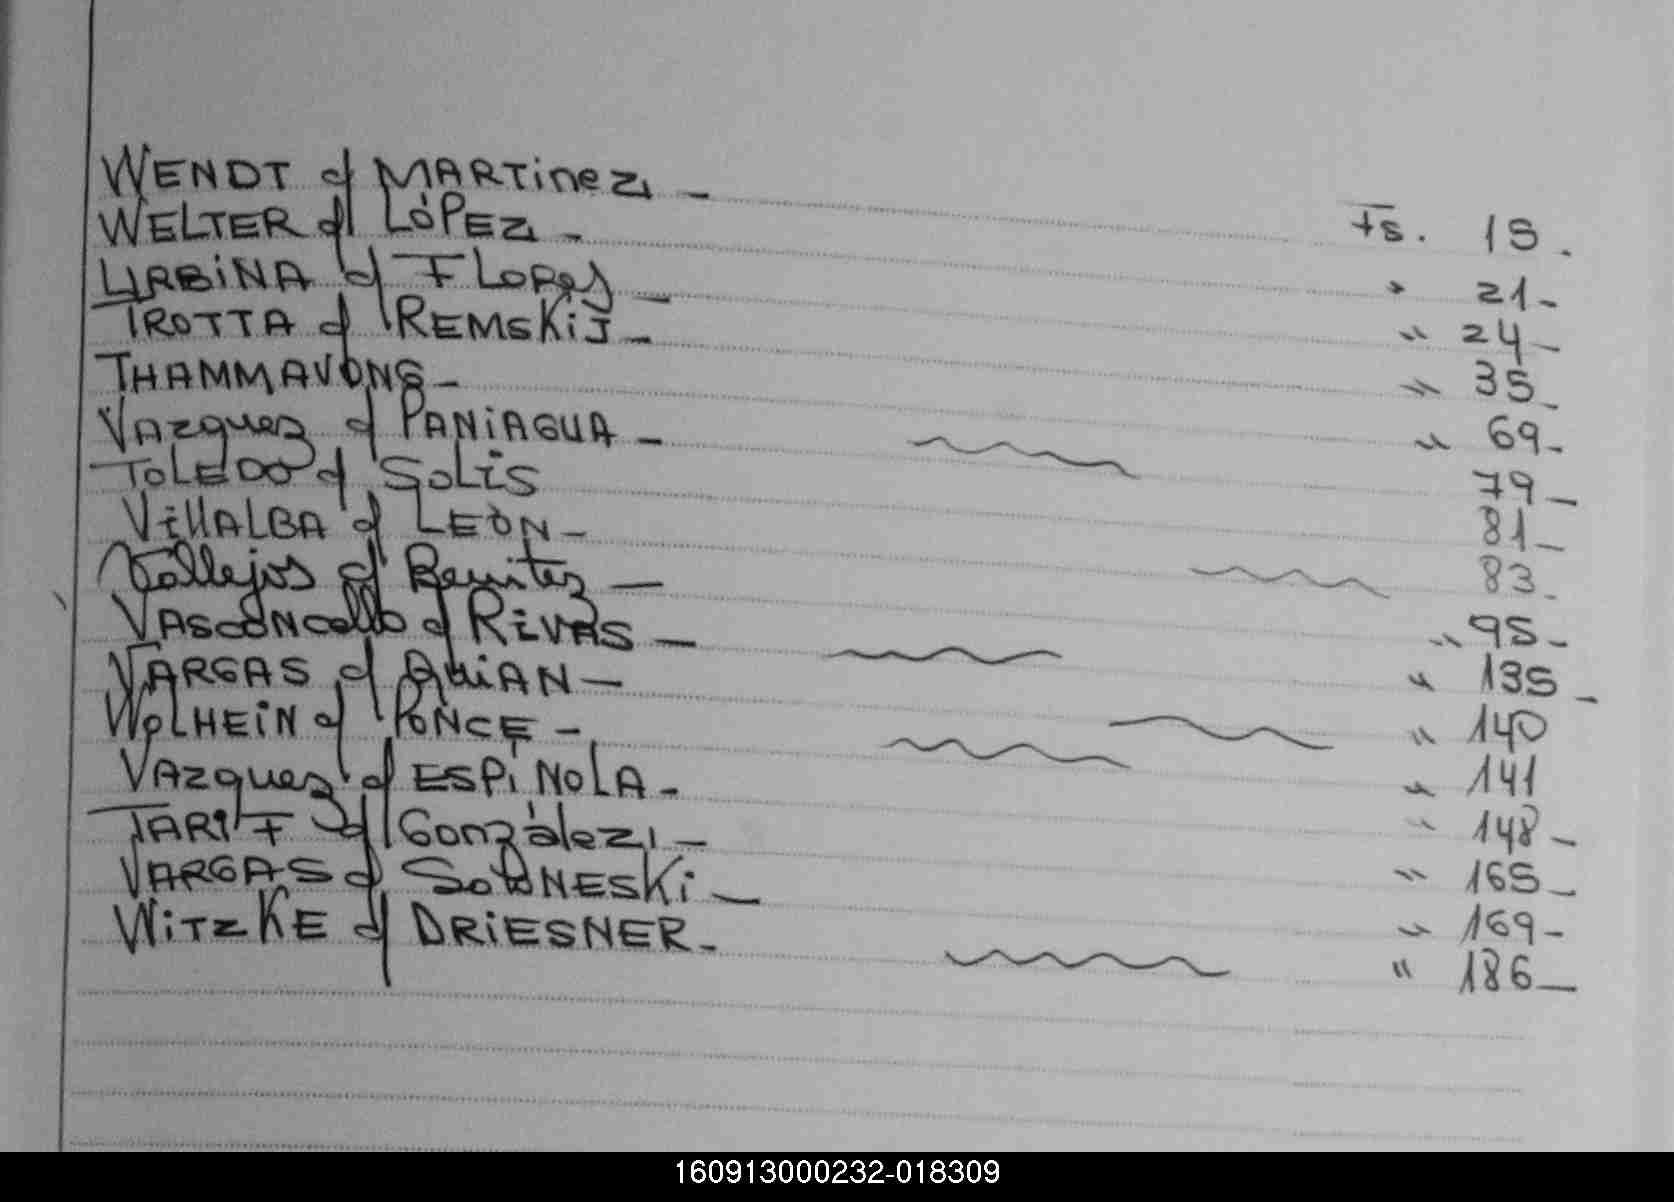 WENDT d MARTinez - Fs. 15.
WELTER d LÓPEZ - " 21-
URBiNA d FLORES - " 24-
TROTTA d REMSKiJ - " 35-
THAMMAVONG - " 69-
VAzquez d PANiAGUA - 79-
TOLEDO d SOLiS 81-
VillALBA d LEÓN - 83.
Vallejos d Benitez - " 95-
VASCONCello d RiVAS - " 135-
VARGAS d QUiAN - " 140
WOLHEiN d PONCE - " 141
VAzquez d ESPiNOLA - " 148-
TARiF d González - " 165-
VARGAS d SOLONESKi - " 169-
WiTZKE d DRiESNER - " 186-
160913000232-018309